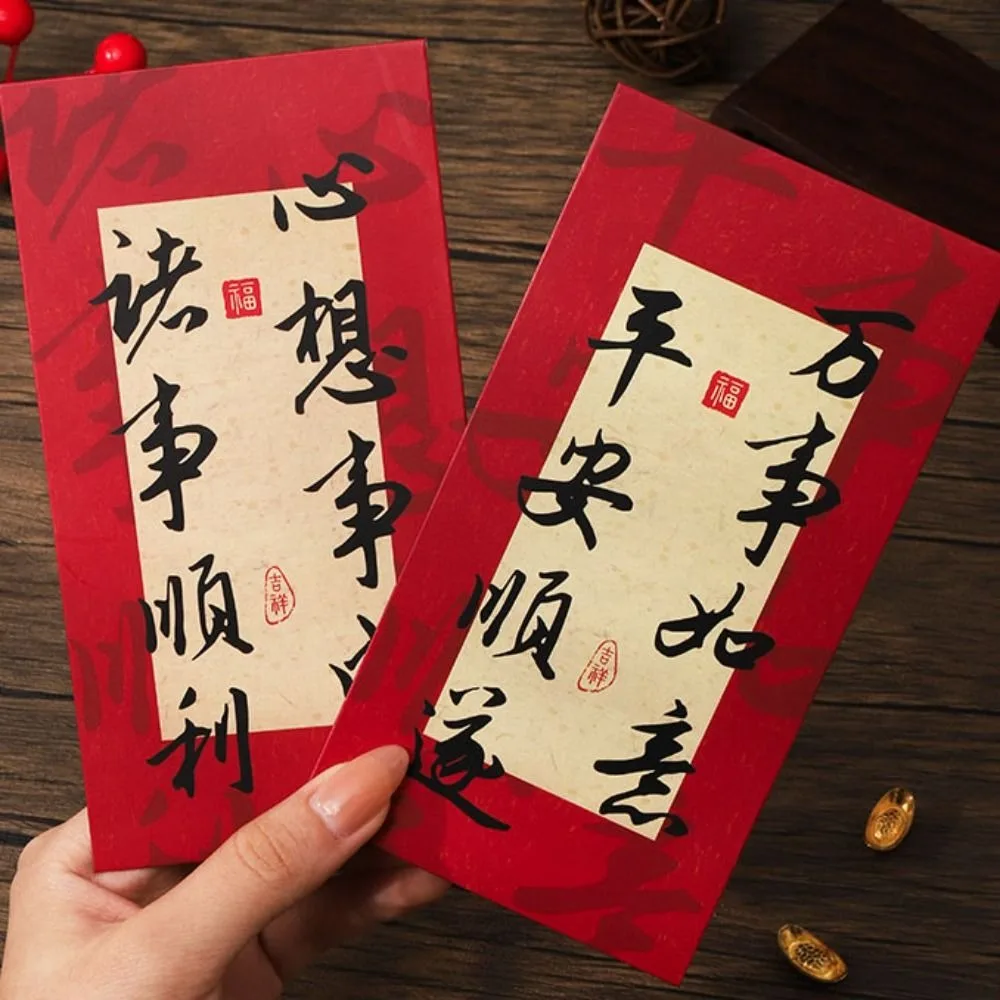 心想事
诸事顺利
福
吉祥
万事如意
平安顺遂
福
吉祥